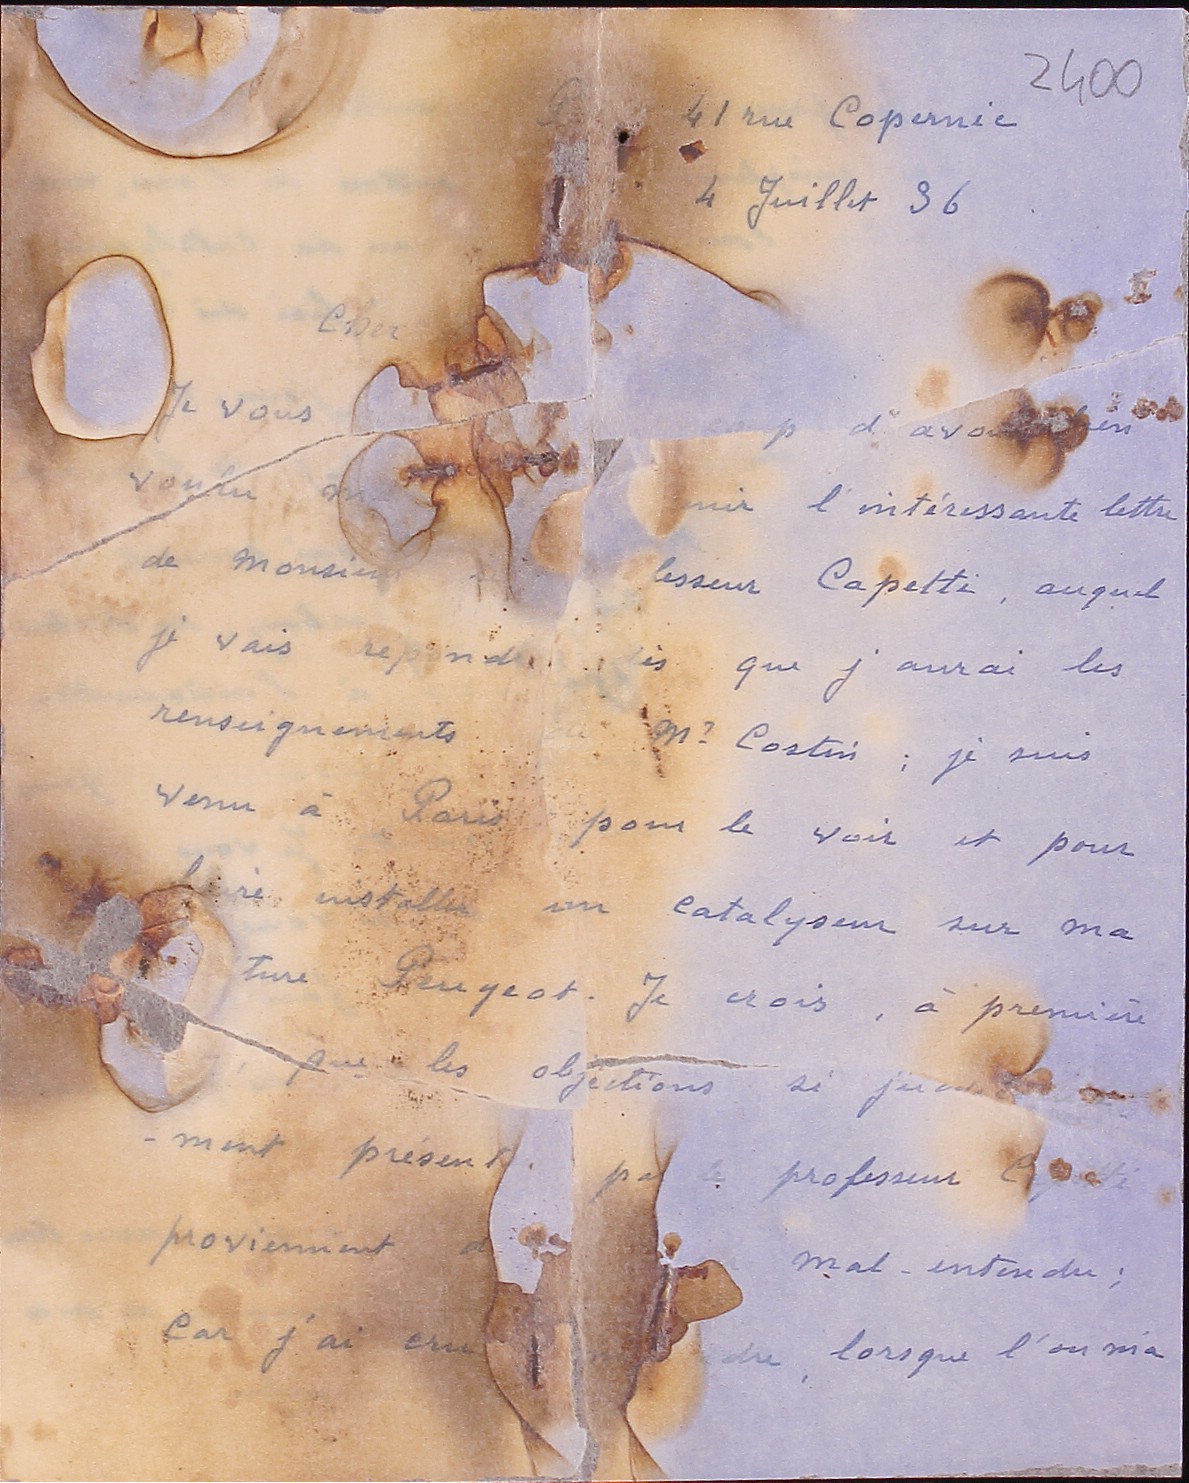 2400
41 rue Copernic
4 Juillet 36
Cher
Je vous d'avoir bien
voulu l'intéressante lettre
de Monsieur fesseur Capetti, auquel
je vais répondre dès que j'aurai les
renseignements de Mr Costin ; je suis
venu à Paris pour le voir et pour
faire installer un catalyseur sur ma
ture Peugeot. Je crois, à première
, que les objections si
-ment présent par le professeur Capetti
proviennent d mal-entendu ;
Car j'ai cru dre, lorsque l'on m'a